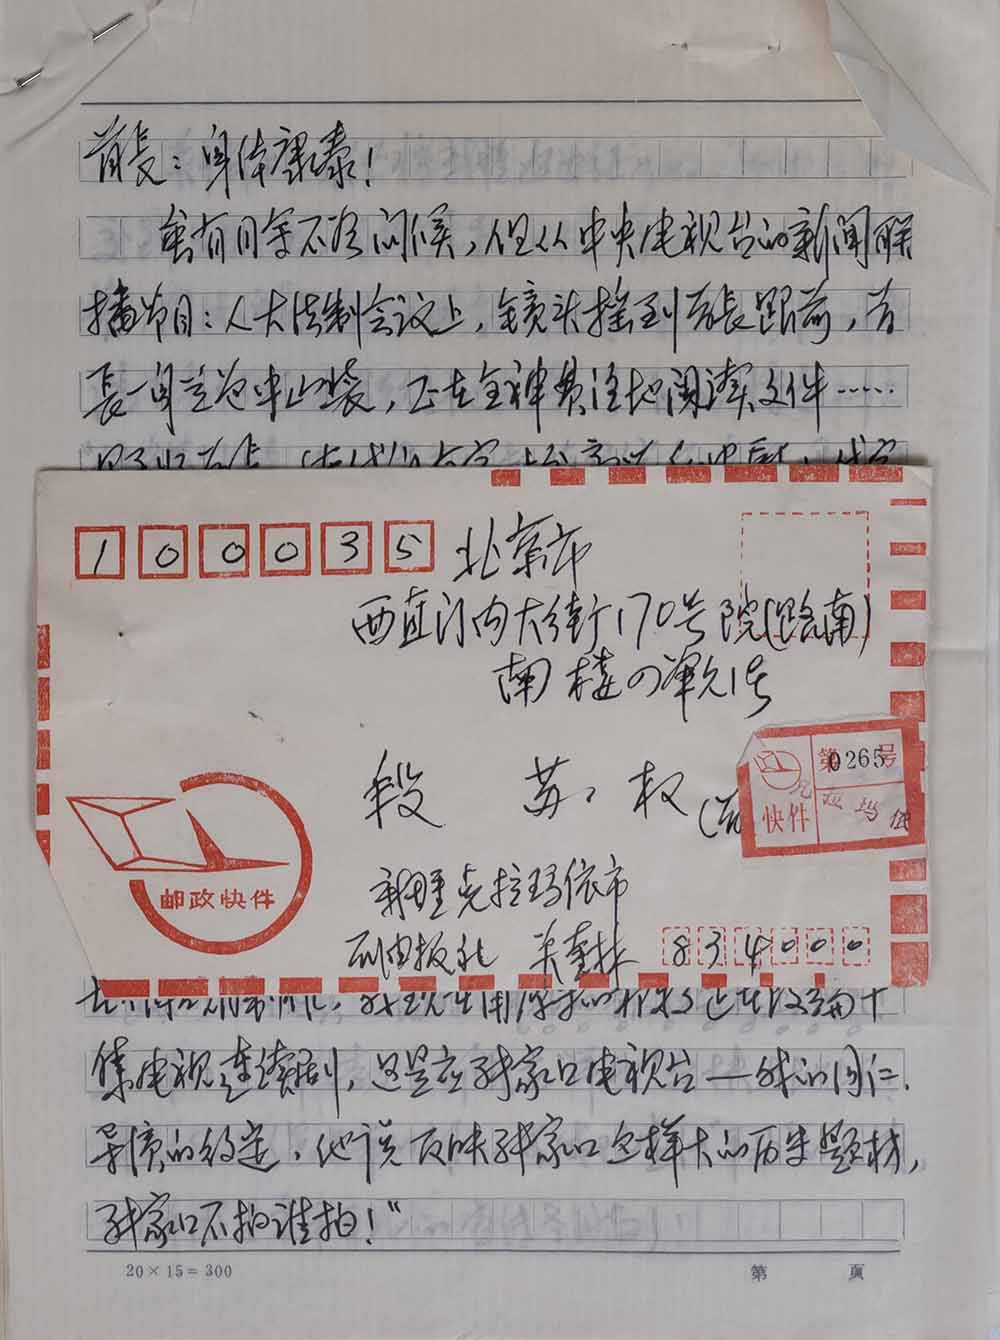 首长：身体康泰！
虽有月余不咨问候，但从中央电视台的新闻联
播节目：人大法制会议上，镜头摇到首长跟前，首
长一身兰色中山装，正在全神贯注地阅读文件……
100035
北京市
西直门内大街170号院(路南)
南楼
段苏权
第0265号
快件
克拉玛依
邮政快件
新疆克拉玛依市
834000
集电视连续剧，这是应张家口电视台—我的同仁、
导演的约定，他说反映张家口这样大的历史题材，
张家口不拍谁拍！"
20×15=300
第 页